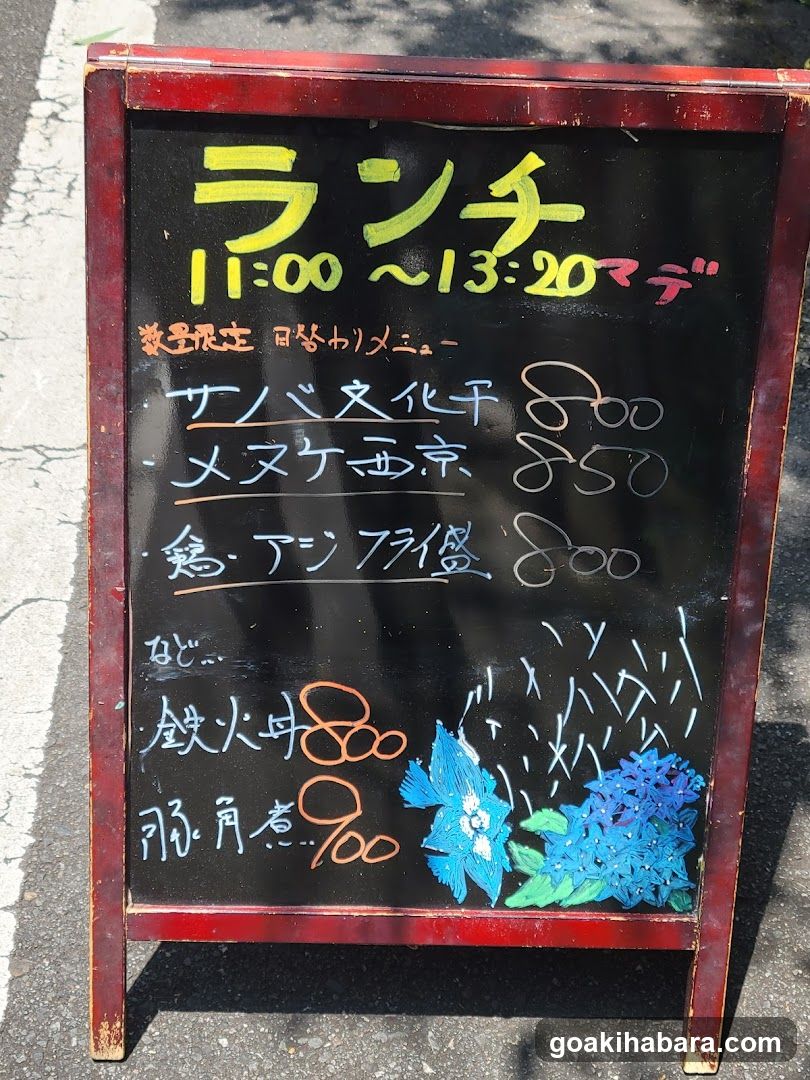 ランチ
11:00 〜13:20マデ
数量限定 日替わりメニュー
・サバ文化干 800
・メヌケ西京 850
・鶏・アジフライ盛 800
など…
・鉄火丼 800
・豚角煮… 900
goakihabara.com